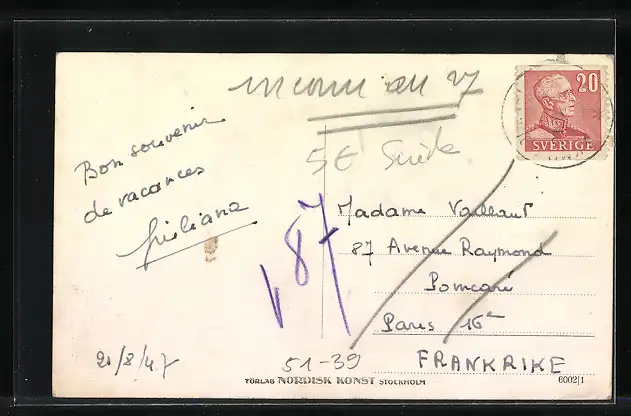 inconnu au 27
20
SVERIGE
Bon souvenir
de vacances
Giuliana
5€ Suède
87
Madame Vaillant
87 Avenue Raymond
Poincaré
Paris 16e
FRANKRIKE
21/8/47
51-39
FÖRLAG NORDISK KONST STOCKHOLM
6002/1